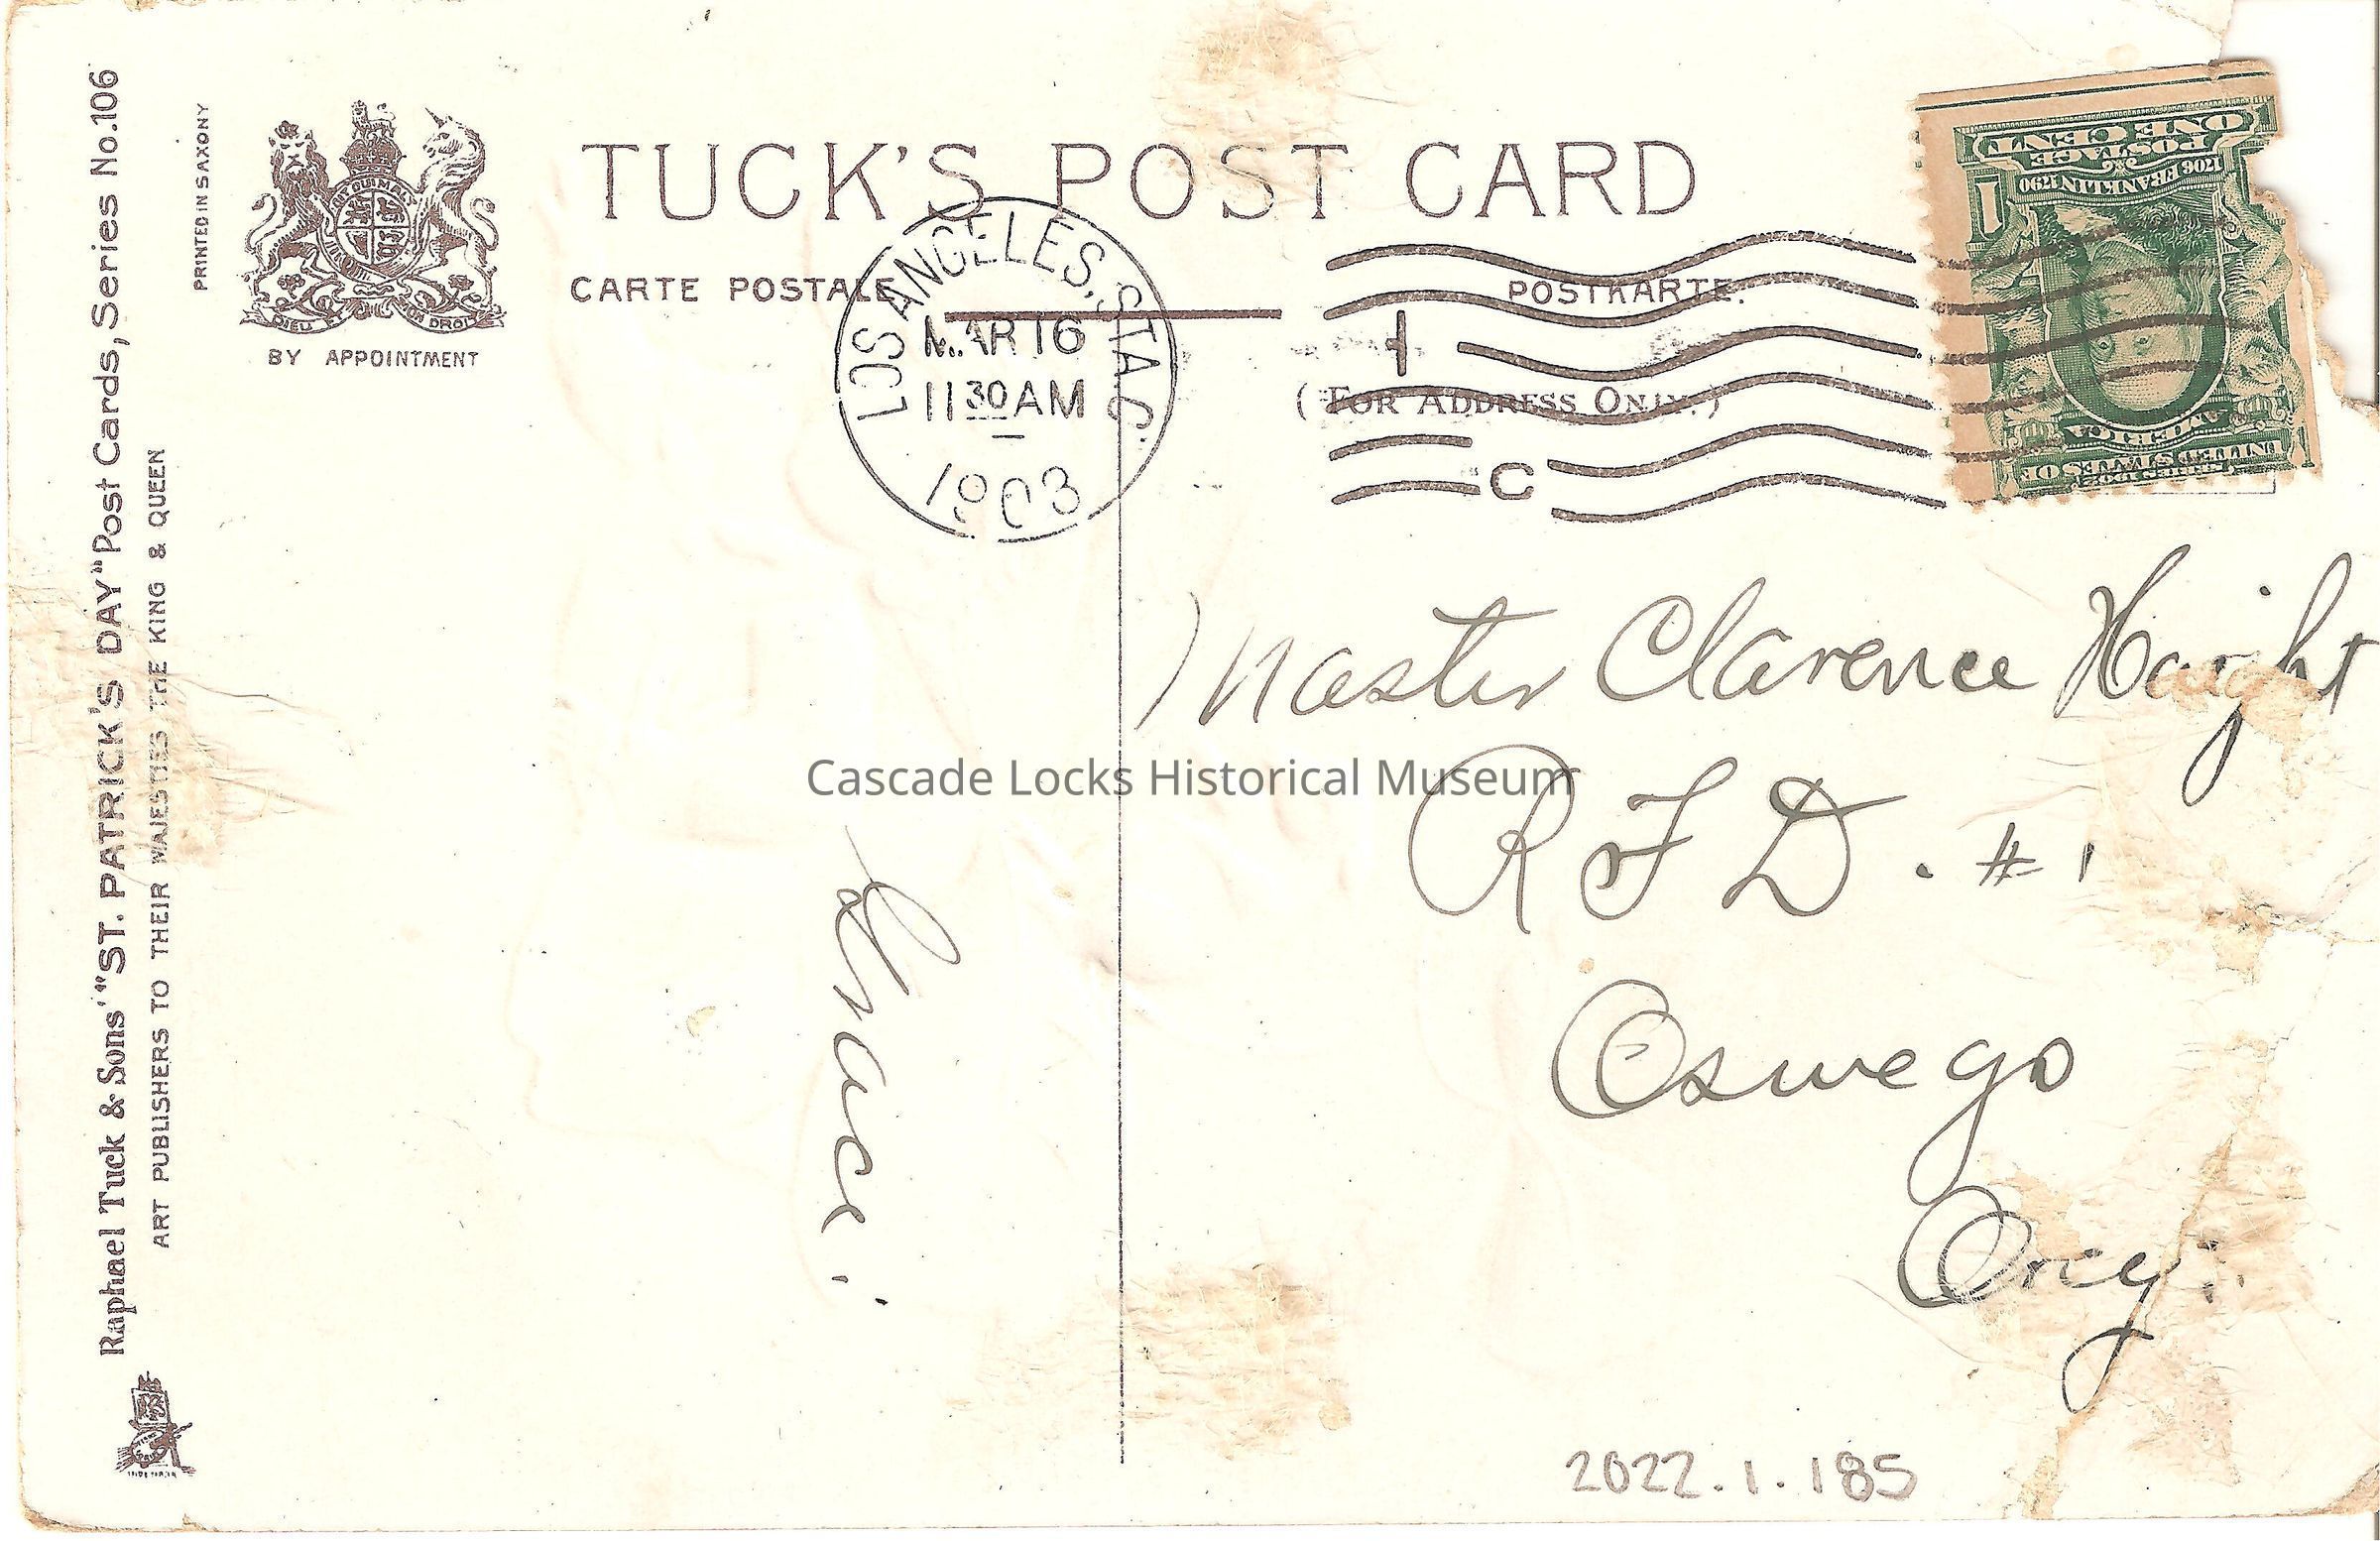 Raphael Tuck & Sons' "ST. PATRICK'S DAY" Post Cards, Series No.106
ART PUBLISHERS TO THEIR MAJESTIES THE KING & QUEEN
PRINTED IN SAXONY
DIEU ET MON DROIT
BY APPOINTMENT
TUCK'S POST CARD
CARTE POSTALE
POSTKARTE.
(FOR ADDRESS ONLY.)
LOS ANGELES, STA. C.
MAR 16
11 30 AM
C
POSTAGE
ONE CENT
1706 FRANKLIN 1790
1
UNITED STATES OF
AMERICA
SERIES 1902
Master Clarence Haight
R F D. # 1
Oswego
Oreg.
Grace.
Cascade Locks Historical Museum
2022.1.185